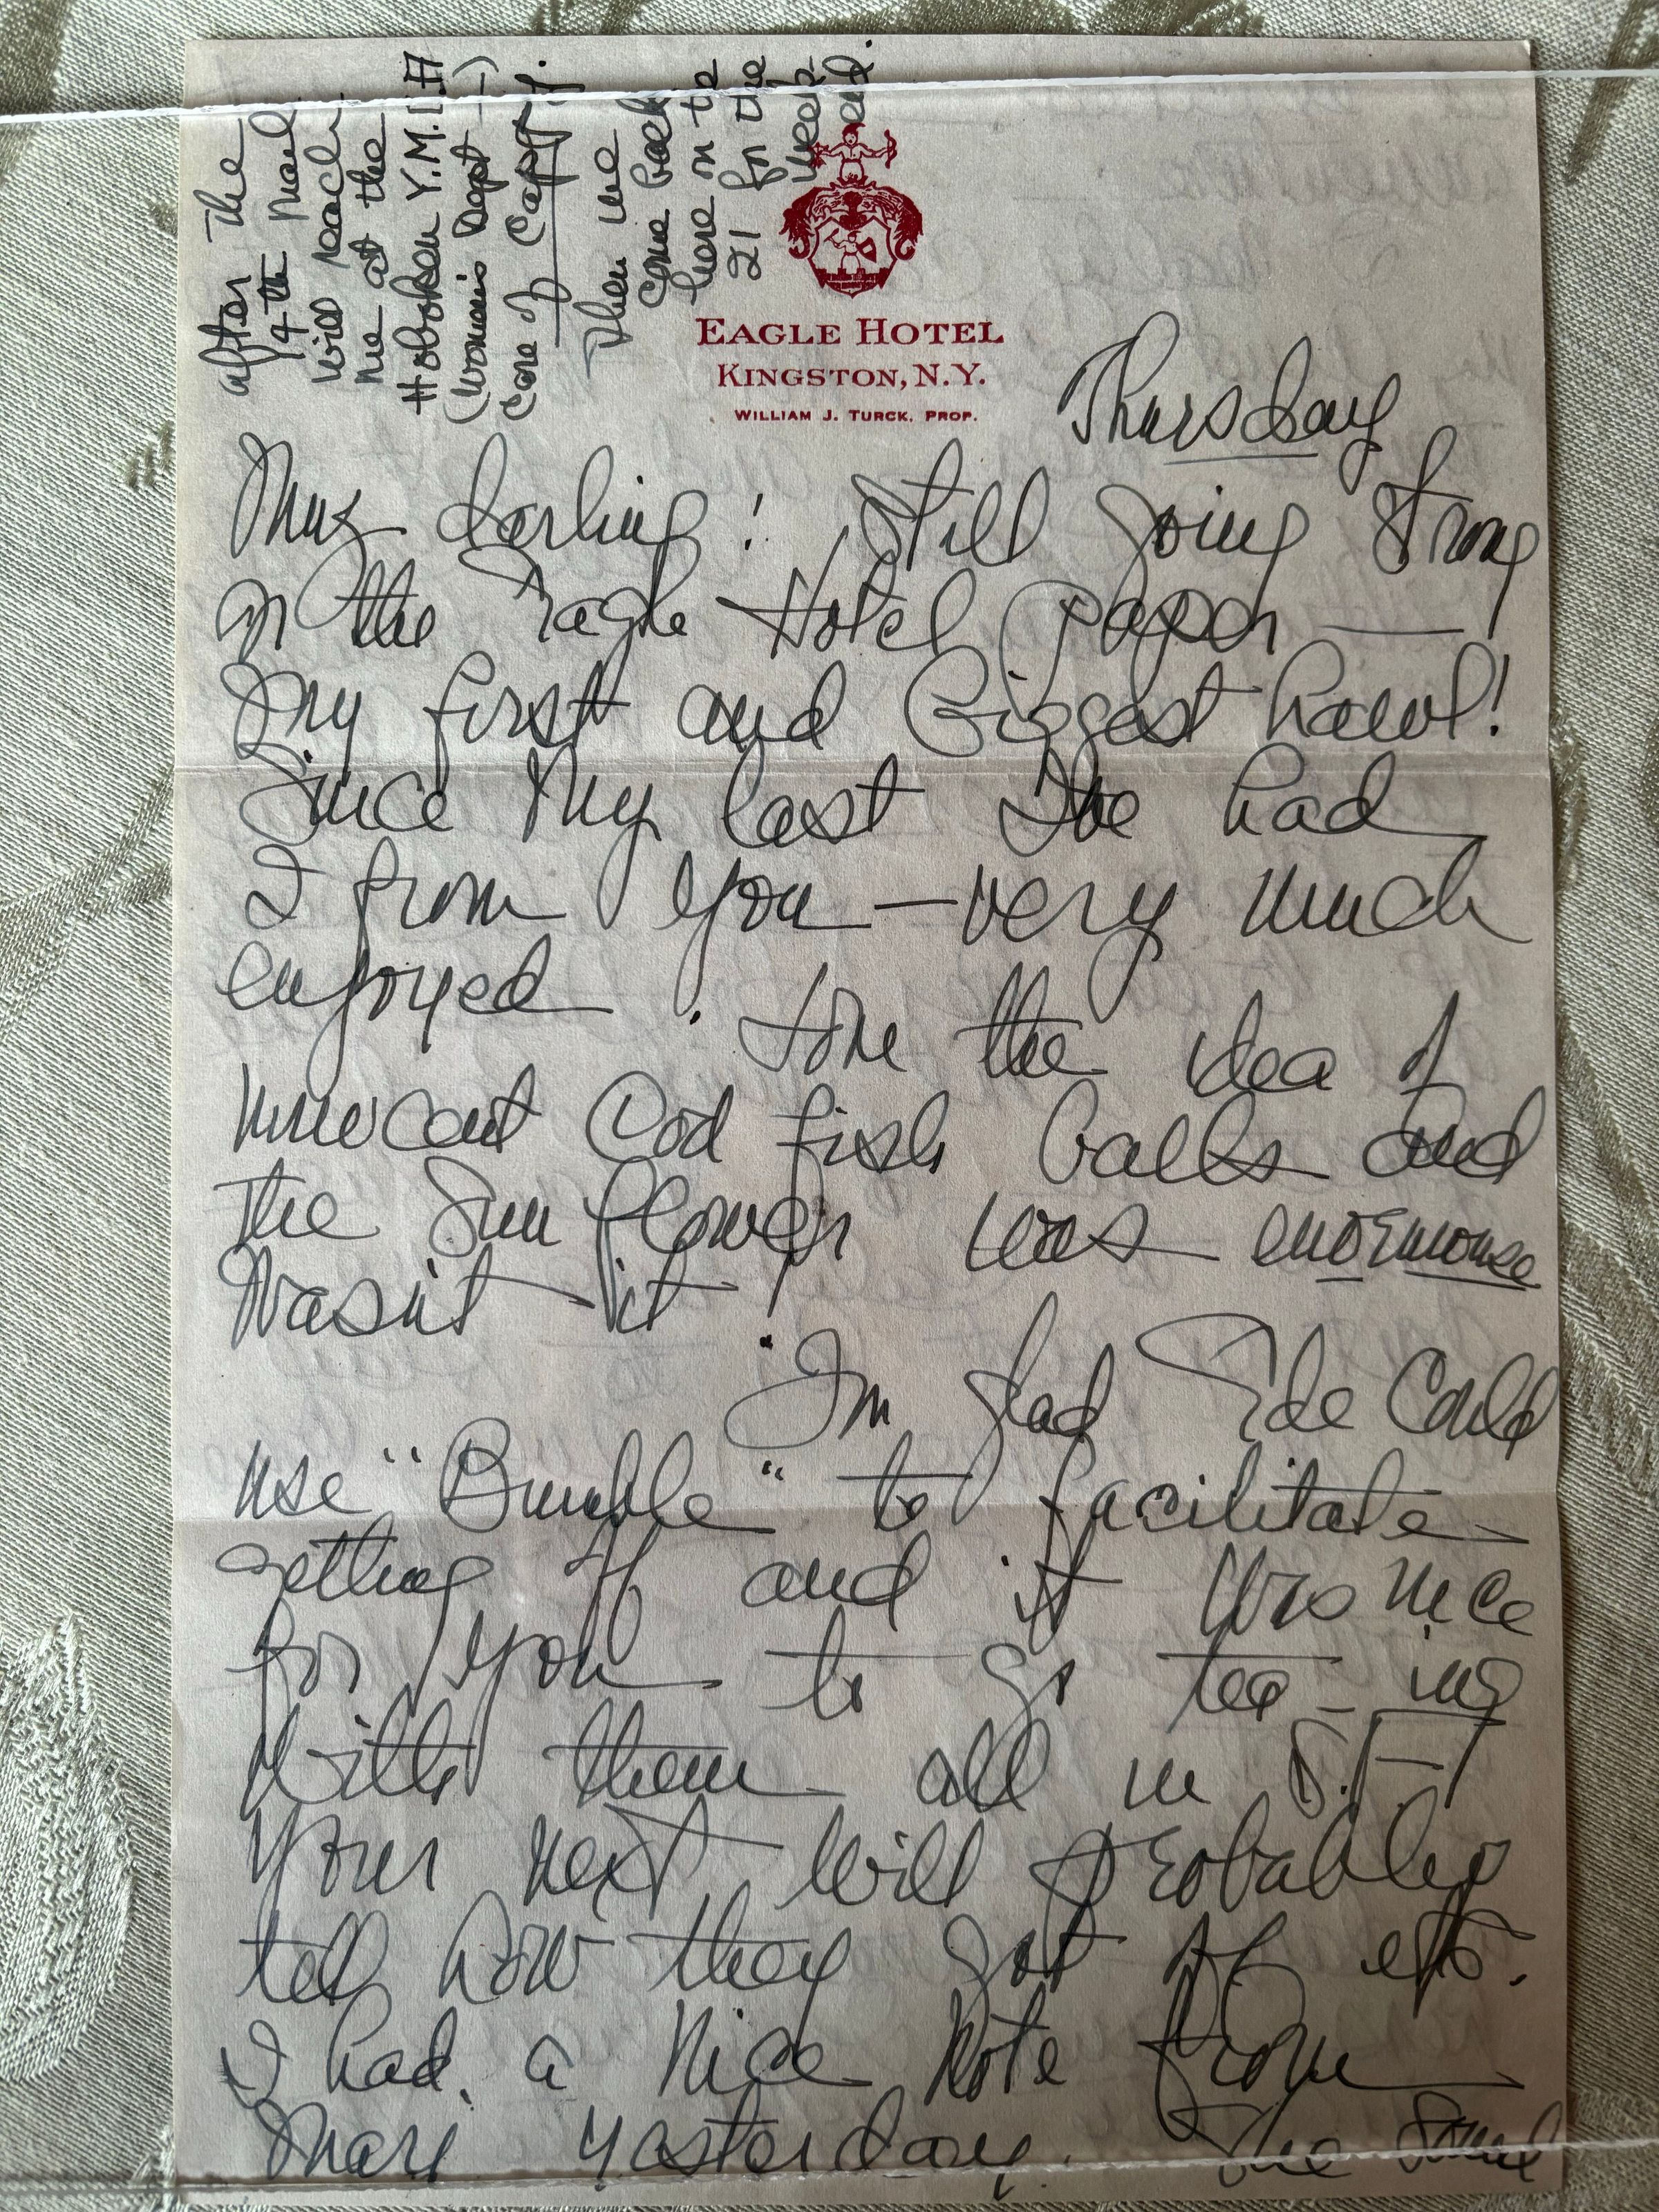 after the
14th mail
will reach
me at the
Hoboken Y.M.C.A
(Women's Dept —)
Care of Capt J.
Then we
come back
here on the
21 for the
week
end.
EAGLE HOTEL
KINGSTON, N.Y.
WILLIAM J. TURCK, PROP.
Thursday
darling! Still going strong
on the Eagle Hotel paper —
My first and biggest haul!
Since my last I've had
2 from you — very much
enjoyed. Love the idea of
innocent Cod fish balls and
the Sun flower was enormouse
Wasn't it!
I'm glad Ede Could
use "Bumble" to facilitate
getting off and it was nice
for you to go too-ing
with them all in S.F. —
Your next will probably
tell how they got off etc.
I had a nice note from
Mari yasterday. She